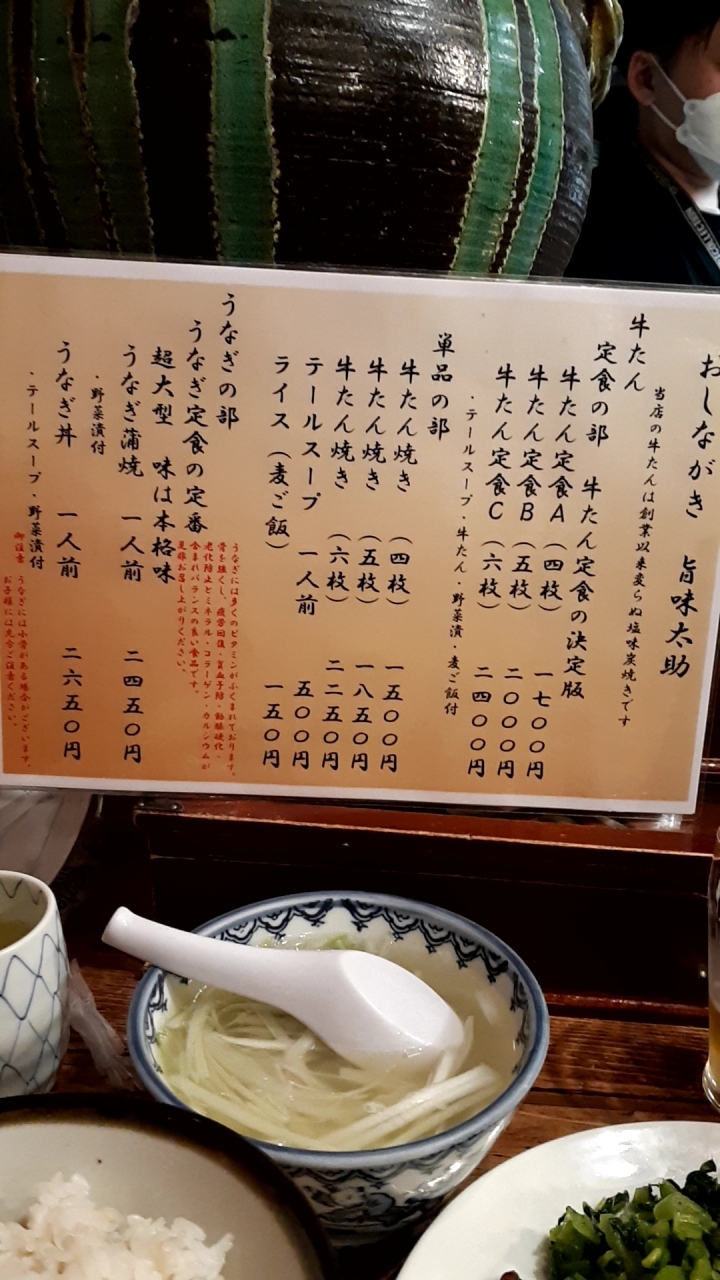 おしながき 旨味太助
当店の牛たんは創業以来変らぬ塩味炭焼きです
牛たん
定食の部 牛たん定食の決定版
牛たん定食A（四枚） 一七〇〇円
牛たん定食B（五枚） 二〇〇〇円
牛たん定食C（六枚） 二四〇〇円
・テールスープ・牛たん・野菜漬・麦ご飯付
単品の部
牛たん焼き（四枚） 一五〇〇円
牛たん焼き（五枚） 一八五〇円
牛たん焼き（六枚） 二二五〇円
テールスープ 一人前 五〇〇円
ライス（麦ご飯） 一五〇円
うなぎの部
うなぎには多くのビタミンがふくまれております。
骨を強くし、疲労回復・貧血予防・動脈硬化・
老化防止とミネラル・コラーゲン・カルシウムが
含まれバランスの良い食品です。
是非お召し上がりください。
うなぎ定食の定番
超大型 味は本格味
うなぎ蒲焼 一人前 二四五〇円
・野菜漬付
うなぎ丼 一人前 二六五〇円
・テールスープ・野菜漬付
御注意 うなぎには小骨がある場合がございます。
お子様には充分ご注意ください。